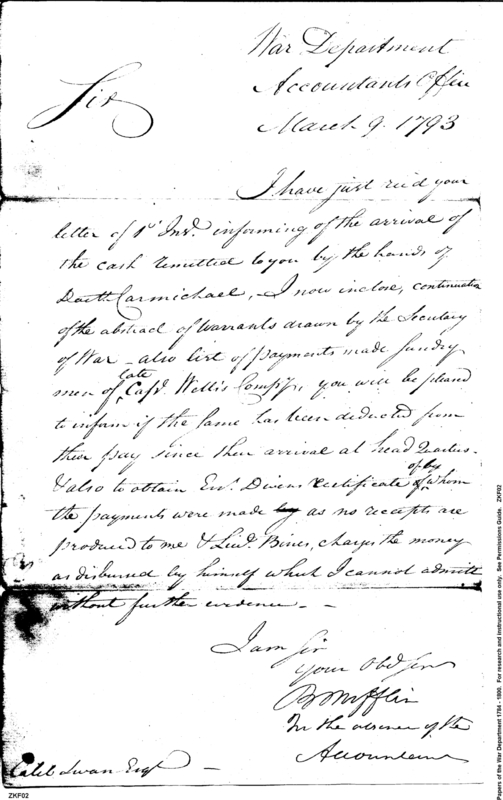 War Department
Accountants Office
Sir
March 9. 1793
I have just rec'd your
letter of 1st Inst. informing of the arrival of
the cash remitted to you by the hands of
Doctr. Carmichael, I now inclose, continuation
of the abstract of warrants drawn by the Secretary
of War - also list of payments made sundry
men of late Capt. Wells's Compy., you will be pleased
to inform if the same has been deducted from
their pay since their arrival at head Quarters.
& also to obtain Ens. Divens certificate of by whom
the payments were made by as no receipts are
produced to me & Lieut. Bines, charges the money
as disbursed by himself which I cannot admitt
without further evidence. -
I am Sir
your Obd Serv
B Mifflin
In the absence of the
Accountant
Caleb Swan Esqr -
ZKF02
Papers of the War Department 1784 - 1800. For research and instructional use only. See Permissions Guide. ZKF02